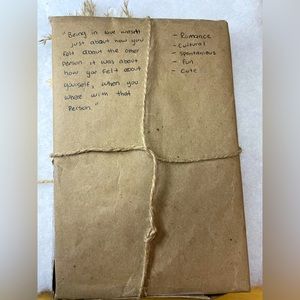 "Being in love wasn't
just about how you
felt about the other
person it was about
how you felt about
yourself, when you
where with that
Person."
- Romance
- Cultural
- spontanious
- Fun
- Cute